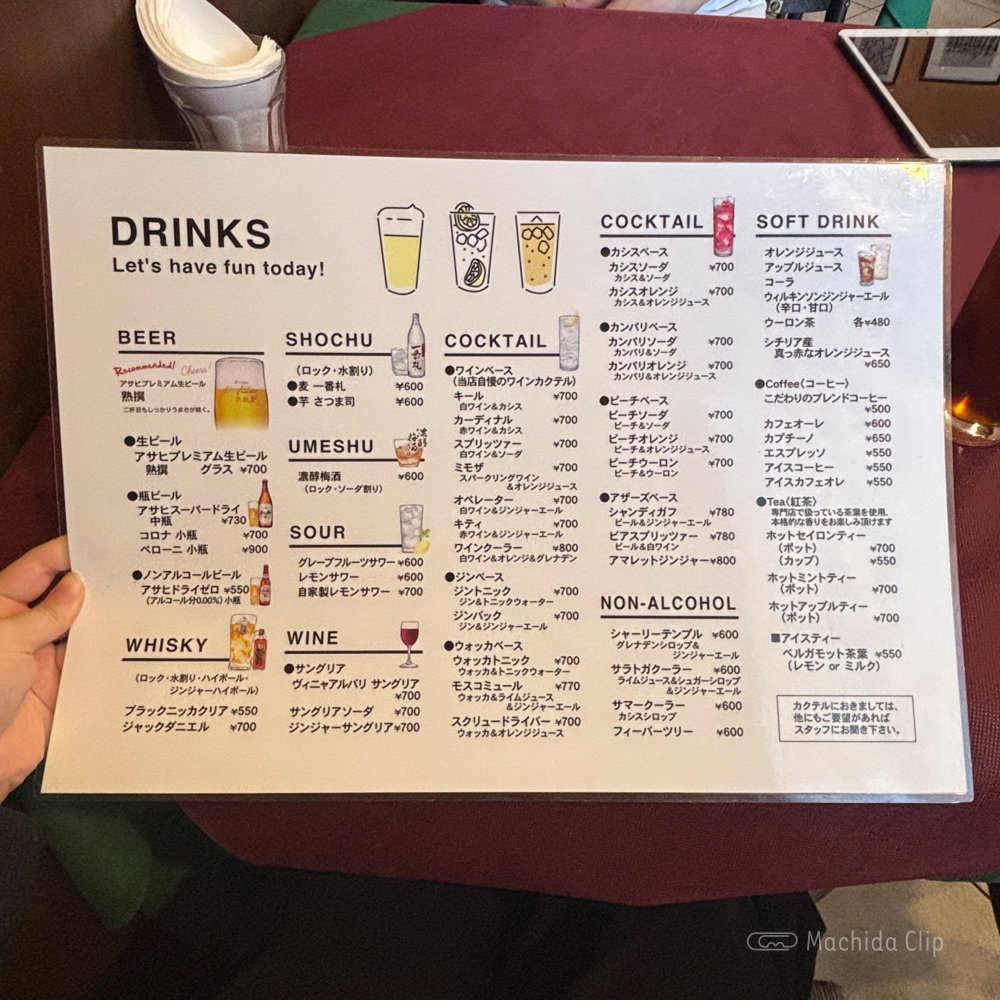 DRINKS
Let's have fun today!
BEER
Recommended! Cheers!
アサヒプレミアム生ビール
熟撰
二杯目もしっかりうまさが続く。
●生ビール
アサヒプレミアム生ビール
熟撰 グラス ¥700
●瓶ビール
アサヒスーパードライ
中瓶 ¥730
コロナ 小瓶 ¥700
ペローニ 小瓶 ¥900
●ノンアルコールビール
アサヒドライゼロ ¥550
(アルコール分0.00%) 小瓶
WHISKY
(ロック・水割り・ハイボール・
ジンジャーハイボール)
ブラックニッカクリア ¥550
ジャックダニエル ¥700
SHOCHU
(ロック・水割り)
●麦 一番札 ¥600
●芋 さつま司 ¥600
UMESHU
濃醇梅酒 ¥600
(ロック・ソーダ割り)
SOUR
グレープフルーツサワー ¥600
レモンサワー ¥600
自家製レモンサワー ¥700
WINE
●サングリア
ヴィニャアルバリ サングリア
¥700
サングリアソーダ ¥700
ジンジャーサングリア ¥700
COCKTAIL
●ワインベース
(当店自慢のワインカクテル)
キール ¥700
白ワイン&カシス
カーディナル ¥700
赤ワイン&カシス
スプリッツァー ¥700
白ワイン&ソーダ
ミモザ ¥700
スパークリングワイン
&オレンジジュース
オペレーター ¥700
白ワイン&ジンジャーエール
キティ ¥700
赤ワイン&ジンジャーエール
ワインクーラー ¥800
白ワイン&オレンジ&グレナデン
●ジンベース
ジントニック ¥700
ジン&トニックウォーター
ジンバック ¥700
ジン&ジンジャーエール
●ウォッカベース
ウォッカトニック ¥700
ウォッカ&トニックウォーター
モスコミュール ¥770
ウォッカ&ライムジュース
&ジンジャーエール
スクリュードライバー ¥700
ウォッカ&オレンジジュース
COCKTAIL
●カシスベース
カシスソーダ ¥700
カシス&ソーダ
カシスオレンジ ¥700
カシス&オレンジジュース
●カンパリベース
カンパリソーダ ¥700
カンパリ&ソーダ
カンパリオレンジ ¥700
カンパリ&オレンジジュース
●ピーチベース
ピーチソーダ ¥700
ピーチ&ソーダ
ピーチオレンジ ¥700
ピーチ&オレンジジュース
ピーチウーロン ¥700
ピーチ&ウーロン
●アザーズベース
シャンディガフ ¥780
ビール&ジンジャーエール
ビアスプリッツァー ¥780
ビール&白ワイン
アマレットジンジャー ¥800
NON-ALCOHOL
シャーリーテンプル ¥600
グレナデンシロップ&
ジンジャーエール
サラトガクーラー ¥600
ライムジュース&シュガーシロップ
&ジンジャーエール
サマークーラー ¥600
カシスシロップ
フィーバーツリー ¥600
SOFT DRINK
オレンジジュース
アップルジュース
コーラ
ウィルキンソンジンジャーエール
(辛口・甘口)
ウーロン茶 各¥480
シチリア産
真っ赤なオレンジジュース
¥650
●Coffee〈コーヒー〉
こだわりのブレンドコーヒー
¥500
カフェオーレ ¥600
カプチーノ ¥650
エスプレッソ ¥550
アイスコーヒー ¥550
アイスカフェオレ ¥550
●Tea〈紅茶〉
専門店で扱っている茶葉を使用、
本格的な香りをお楽しみ頂けます
ホットセイロンティー
(ポット) ¥700
(カップ) ¥550
ホットミントティー
(ポット) ¥700
ホットアップルティー
(ポット) ¥700
■アイスティー
ベルガモット茶葉 ¥550
(レモン or ミルク)
カクテルにおきましては、
他にもご要望があれば
スタッフにお聞き下さい。
Machida Clip